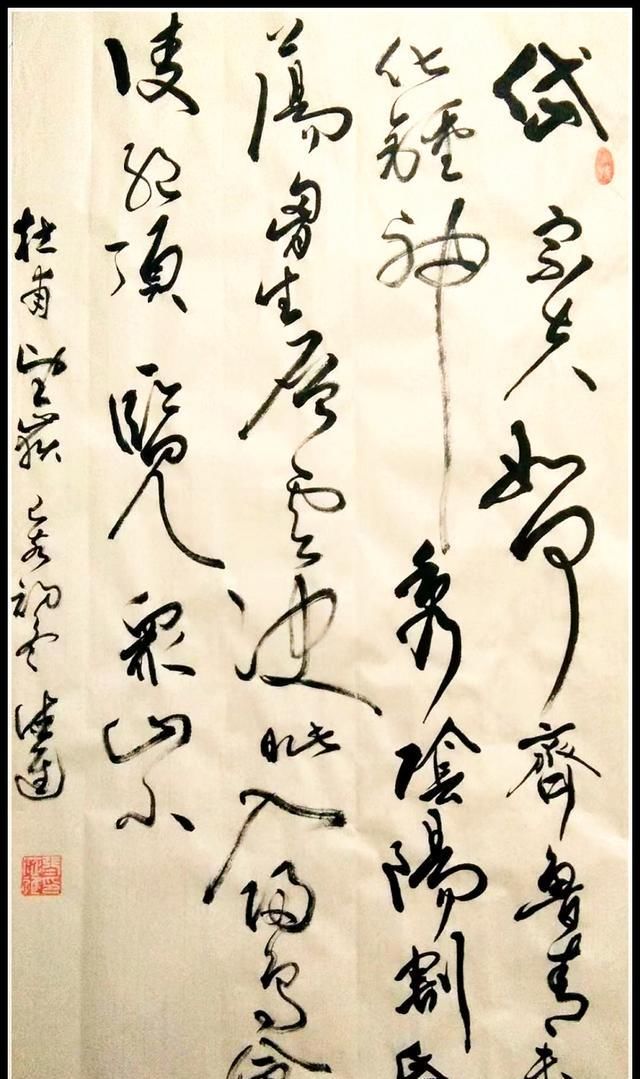 岱宗夫如何齊魯青未
化鍾神秀陰陽割昏
蕩胷生層雲決眦入歸鳥會
凌絕頂覽眾山小
杜甫望嶽己亥初冬